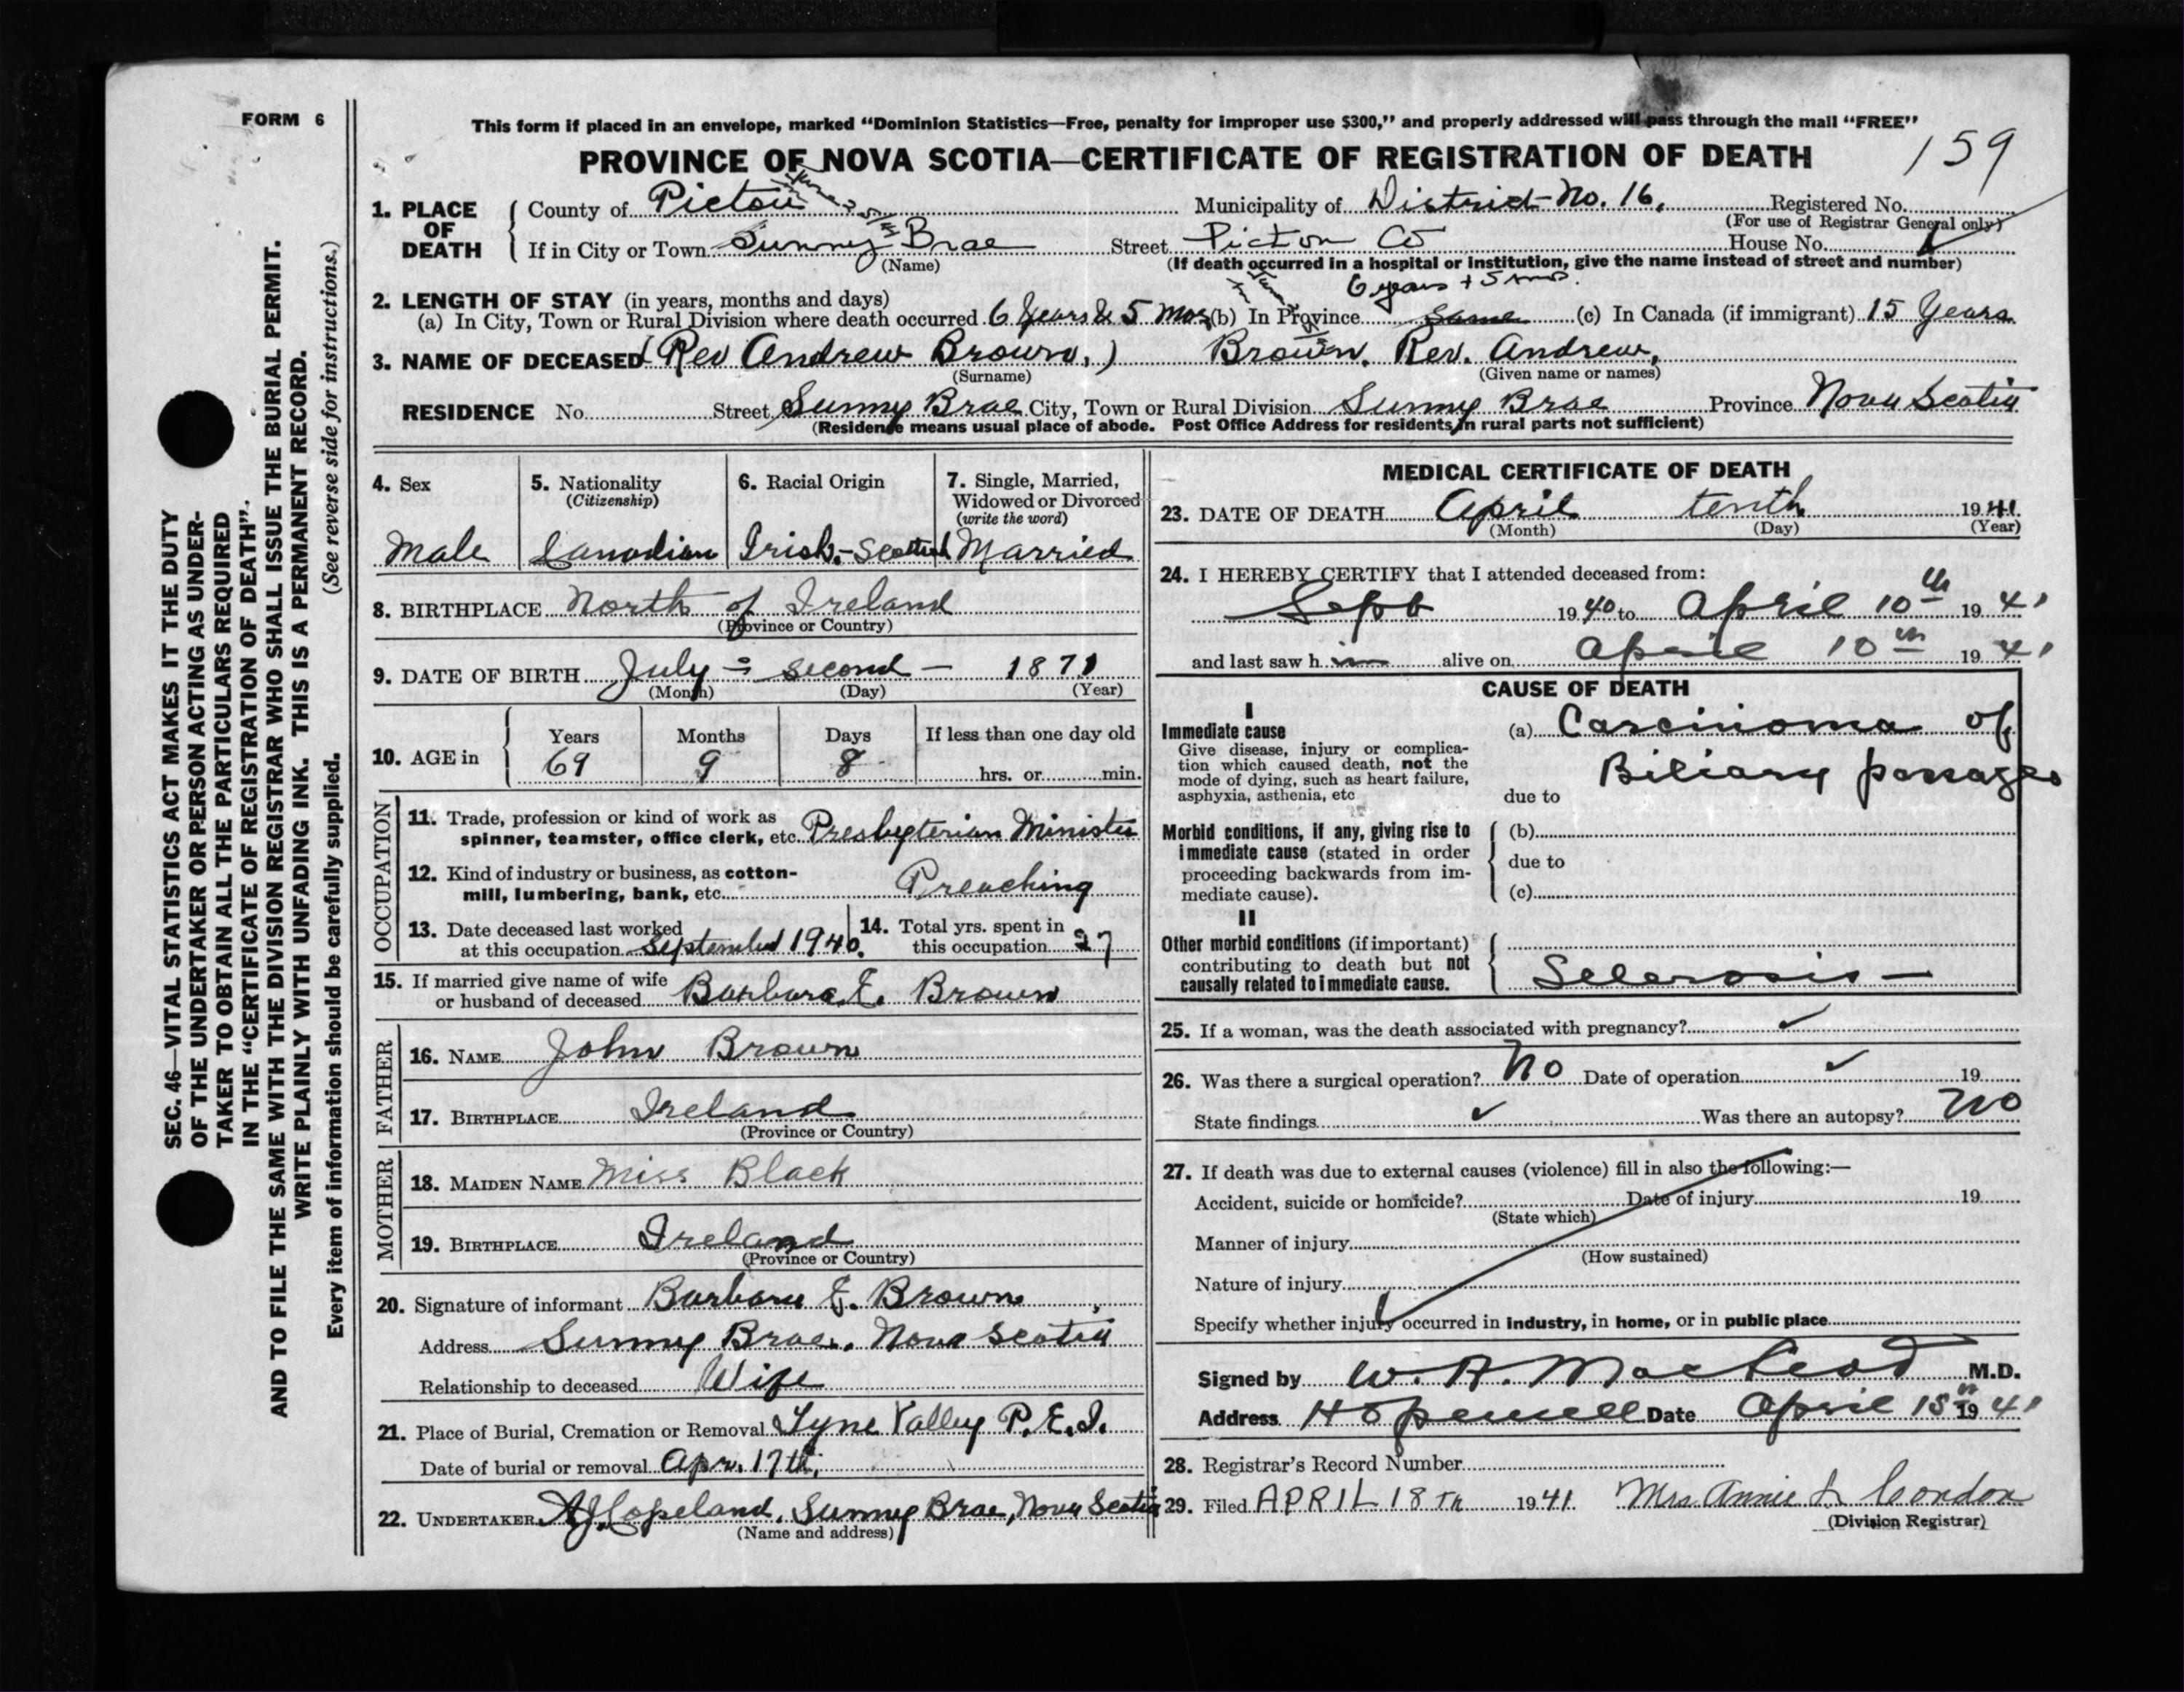 FORM 6
This form if placed in an envelope, marked "Dominion Statistics—Free, penalty for improper use $300," and properly addressed will pass through the mail "FREE"
PROVINCE OF NOVA SCOTIA—CERTIFICATE OF REGISTRATION OF DEATH
159
SEC. 46—VITAL STATISTICS ACT MAKES IT THE DUTY
OF THE UNDERTAKER OR PERSON ACTING AS UNDER-
TAKER TO OBTAIN ALL THE PARTICULARS REQUIRED
IN THE "CERTIFICATE OF REGISTRATION OF DEATH".
AND TO FILE THE SAME WITH THE DIVISION REGISTRAR WHO SHALL ISSUE THE BURIAL PERMIT.
WRITE PLAINLY WITH UNFADING INK. THIS IS A PERMANENT RECORD.
Every item of information should be carefully supplied. (See reverse side for instructions.)
1. PLACE OF DEATH
County of Pictou Municipality of District No. 16. Registered No.
(For use of Registrar General only)
If in City or Town Sunny Brae Street Picton Co House No.
(Name) (If death occurred in a hospital or institution, give the name instead of street and number)
2. LENGTH OF STAY (in years, months and days) 6 years + 5 mos.
(a) In City, Town or Rural Division where death occurred 6 Years & 5 Mos (b) In Province Same (c) In Canada (if immigrant) 15 Years
3. NAME OF DECEASED (Rev Andrew Brown.) Brown. Rev. Andrew,
(Surname) (Given name or names)
RESIDENCE No. Street Sunny Brae City, Town or Rural Division Sunny Brae Province Nova Scotia
(Residence means usual place of abode. Post Office Address for residents in rural parts not sufficient)
4. Sex
Male
5. Nationality
(Citizenship)
Canadian
6. Racial Origin
Irish-Scottish
7. Single, Married,
Widowed or Divorced
(write the word)
Married
8. BIRTHPLACE North of Ireland
(Province or Country)
9. DATE OF BIRTH July - second - 1871
(Month) (Day) (Year)
10. AGE in
Years Months Days If less than one day old
69 9 8 hrs. or min.
OCCUPATION
11. Trade, profession or kind of work as
spinner, teamster, office clerk, etc. Presbyterian Minister
12. Kind of industry or business, as cotton-
mill, lumbering, bank, etc. Preaching
13. Date deceased last worked
at this occupation September 1940.
14. Total yrs. spent in
this occupation 27
15. If married give name of wife
or husband of deceased Barbara E. Brown
FATHER
16. NAME John Brown
17. BIRTHPLACE Ireland
(Province or Country)
MOTHER
18. MAIDEN NAME Miss Black
19. BIRTHPLACE Ireland
(Province or Country)
20. Signature of informant Barbara E. Brown
Address Sunny Brae, Nova Scotia
Relationship to deceased Wife
21. Place of Burial, Cremation or Removal Tyne Valley P.E.I.
Date of burial or removal Apr. 17th.
22. UNDERTAKER Copeland, Sunny Brae, Nova Scotia
(Name and address)
MEDICAL CERTIFICATE OF DEATH
23. DATE OF DEATH April tenth 1941
(Month) (Day) (Year)
24. I HEREBY CERTIFY that I attended deceased from:
Sept 1940 to April 10th 1941
and last saw h im alive on April 10th 1941
CAUSE OF DEATH
I
Immediate cause
Give disease, injury or complica-
tion which caused death, not the
mode of dying, such as heart failure,
asphyxia, asthenia, etc
(a) Carcinoma of
Biliary passages
due to
Morbid conditions, if any, giving rise to
immediate cause (stated in order
proceeding backwards from im-
mediate cause).
(b)
due to
(c)
II
Other morbid conditions (if important)
contributing to death but not
causally related to immediate cause.
Sclerosis —
25. If a woman, was the death associated with pregnancy? ✓
26. Was there a surgical operation? No Date of operation ✓ 19
State findings ✓ Was there an autopsy? No
27. If death was due to external causes (violence) fill in also the following:—
Accident, suicide or homicide? Date of injury 19
(State which)
Manner of injury
(How sustained)
Nature of injury
Specify whether injury occurred in industry, in home, or in public place
Signed by W. A. MacLeod M.D.
Address Hopewell Date April 1941
28. Registrar's Record Number
29. Filed APRIL 18TH 1941. Mrs. Annie L Condon
(Division Registrar)